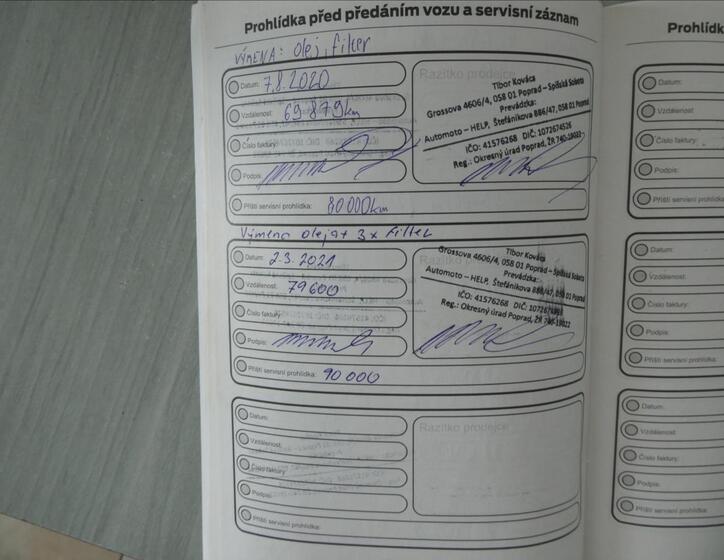 Prohlídka před předáním vozu a servisní záznam
Prohlídk
VÝMENA: Olej, filter
Datum: 7.8.2020
Vzdálenost: 69 879km
Číslo faktury:
Podpis:
Příští servisní prohlídka: 80 000km
Razítko prodejce
Tibor Kováca
Grossova 4606/4, 058 01 Poprad – Spišská Sobota
Prevádzka:
Automoto – HELP, Štefánikova 886/47, 058 01 Poprad
IČO: 41576268 DIČ: 1072674526
Reg.: Okresný úrad Poprad, ŽR 740-19022
Výmena oleja + 3x Filter
Datum: 2.3.2021
Vzdálenost: 79600
Číslo faktury:
Podpis:
Příští servisní prohlídka: 90 000
Tibor Kováca
Grossova 4606/4, 058 01 Poprad – Spišská Sobota
Prevádzka:
Automoto – HELP, Štefánikova 886/47, 058 01 Poprad
IČO: 41576268 DIČ:
Reg.: Okresný úrad Poprad, ŽR 740-19022
Datum:
Vzdálenost:
Číslo faktury:
Podpis:
Příští servisní prohlídka:
Razítko prodejce
Datum:
Vzdálenost:
Číslo faktury:
Podpis:
Příští servisní
Datum:
Vzdálenost:
Číslo faktury:
Podpis:
Příští servisní
Datum:
Vzdálenost:
Číslo faktury:
Podpis:
Příští servisní